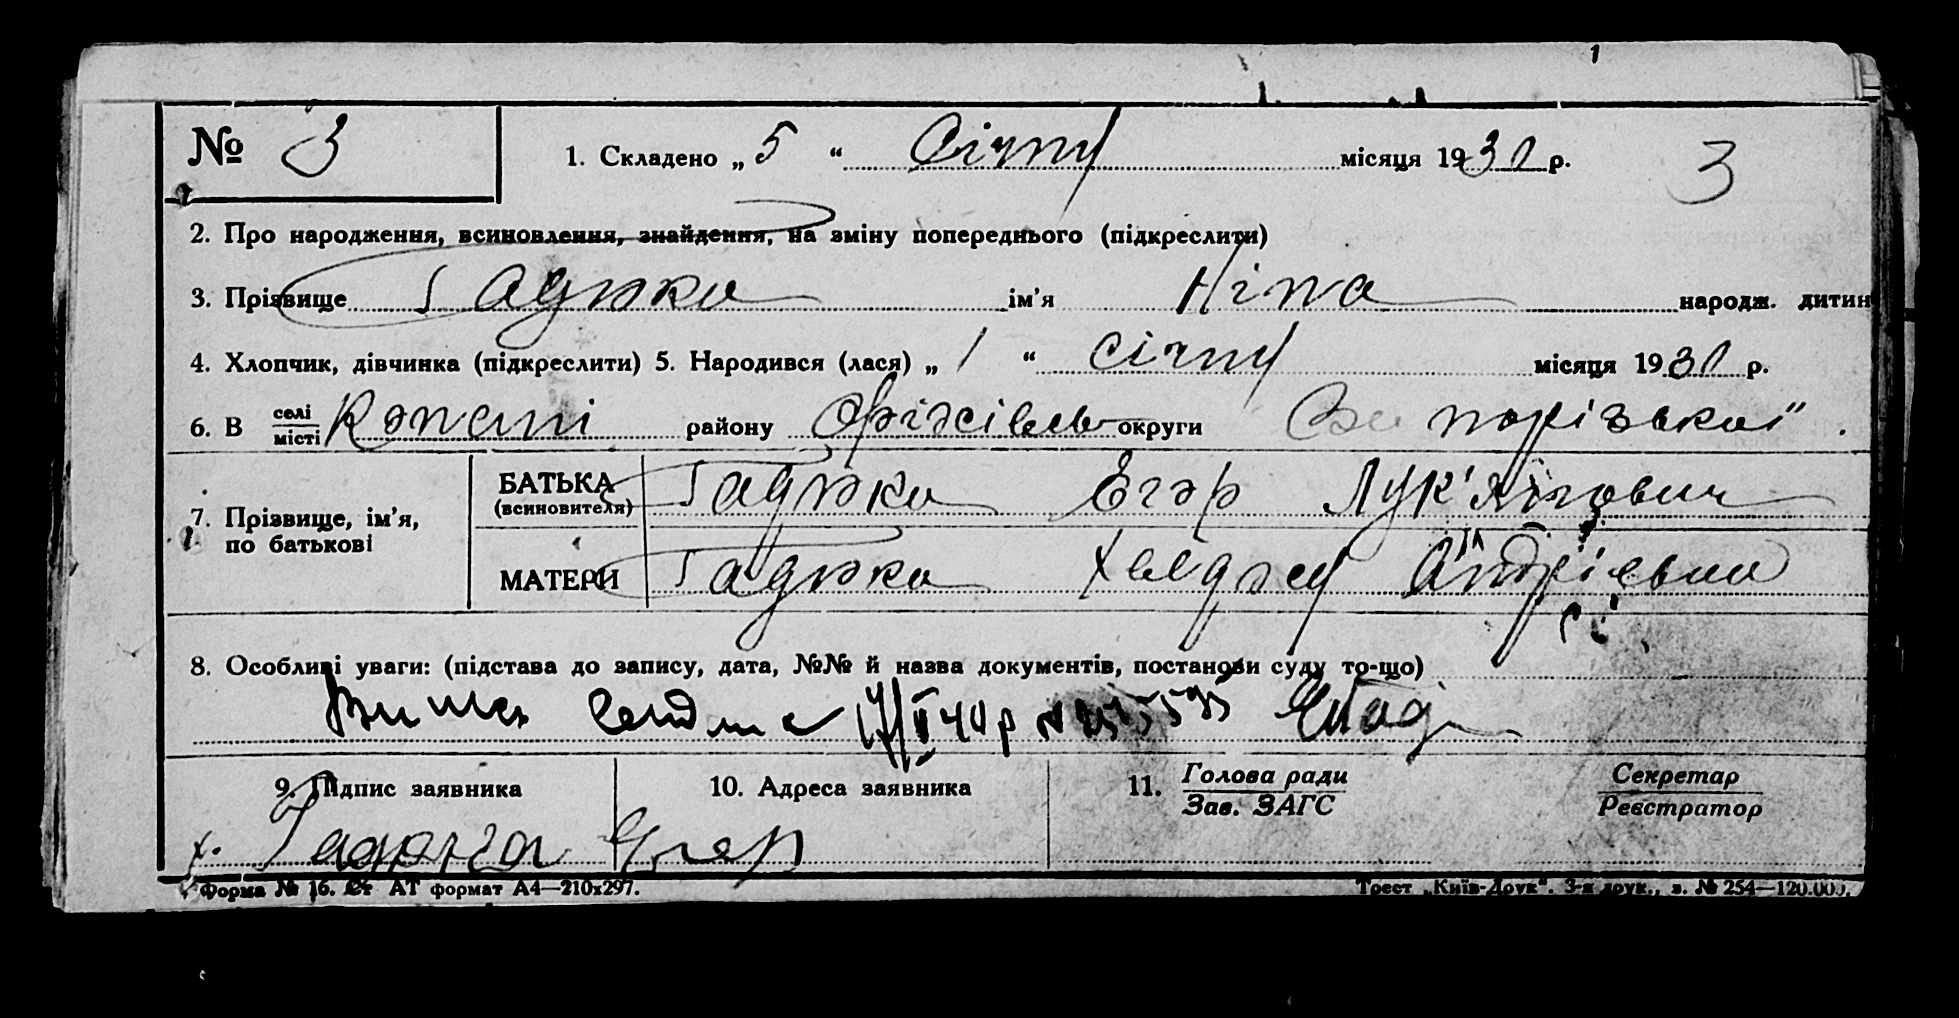 1
№ 3 1. Складено „ 5 “ Січня місяця 1930 р. 3
2. Про народження, всиновлення, знайдення, на зміну попереднього (підкреслити)
3. Прізвище Гадяка ім'я Ніна народж. дитин
4. Хлопчик, дівчинка (підкреслити) 5. Народився (лася) „ 1 “ Січня місяця 1930 р.
6. В селі місті Копані району Оріхівськ округи Запорізької .
7. Прізвище, ім'я, по батькові
БАТЬКА (всиновителя) Гадяка Егор Лук'янович
МАТЕРИ Гадяка Андрієвна
8. Особливі уваги: (підстава до запису, дата, №№ й назва документів, постанови суду то-що)
17/II 40 р
9. Підпис заявника 10. Адреса заявника 11. Голова ради Зав. ЗАГС Секретар Реєстратор
Егор
Форма № 16. Ст АТ формат А4—210х297. Трест „Київ-Друк“. 3-я друк., з. № 254—120.000.